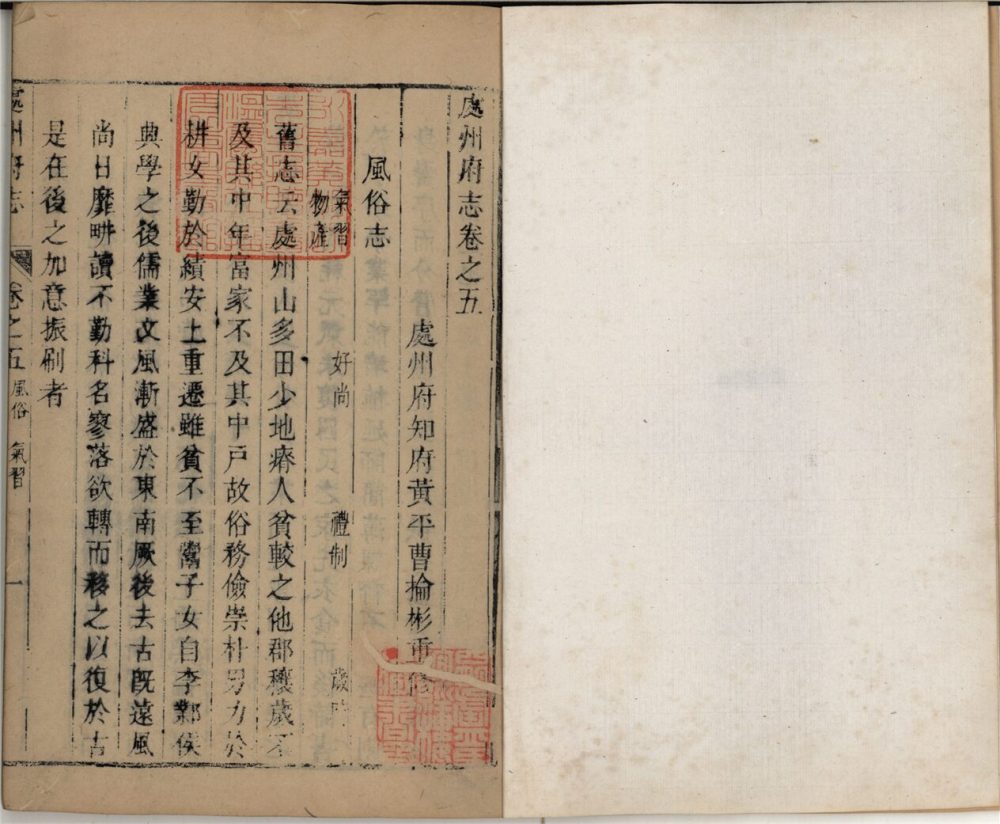 處州府志卷之五
處州府知府黃平曹掄彬重修
風俗志
氣習 好尚 禮制 歲時
物產
舊志云處州山多田少地瘠人貧較之他郡穰歲不
及其中年富家不及其中戶故俗務儉崇朴男力於
耕女勤於績安土重遷雖貧不至鬻子女自李鄴侯
典學之後儒業文風漸盛於東南厥後去古旣遠風
尚日靡畊讀不勤科名寥落欲轉而移之以復於古
是在後之加意振刷者
處州府志 卷之五 風俗 氣習 一